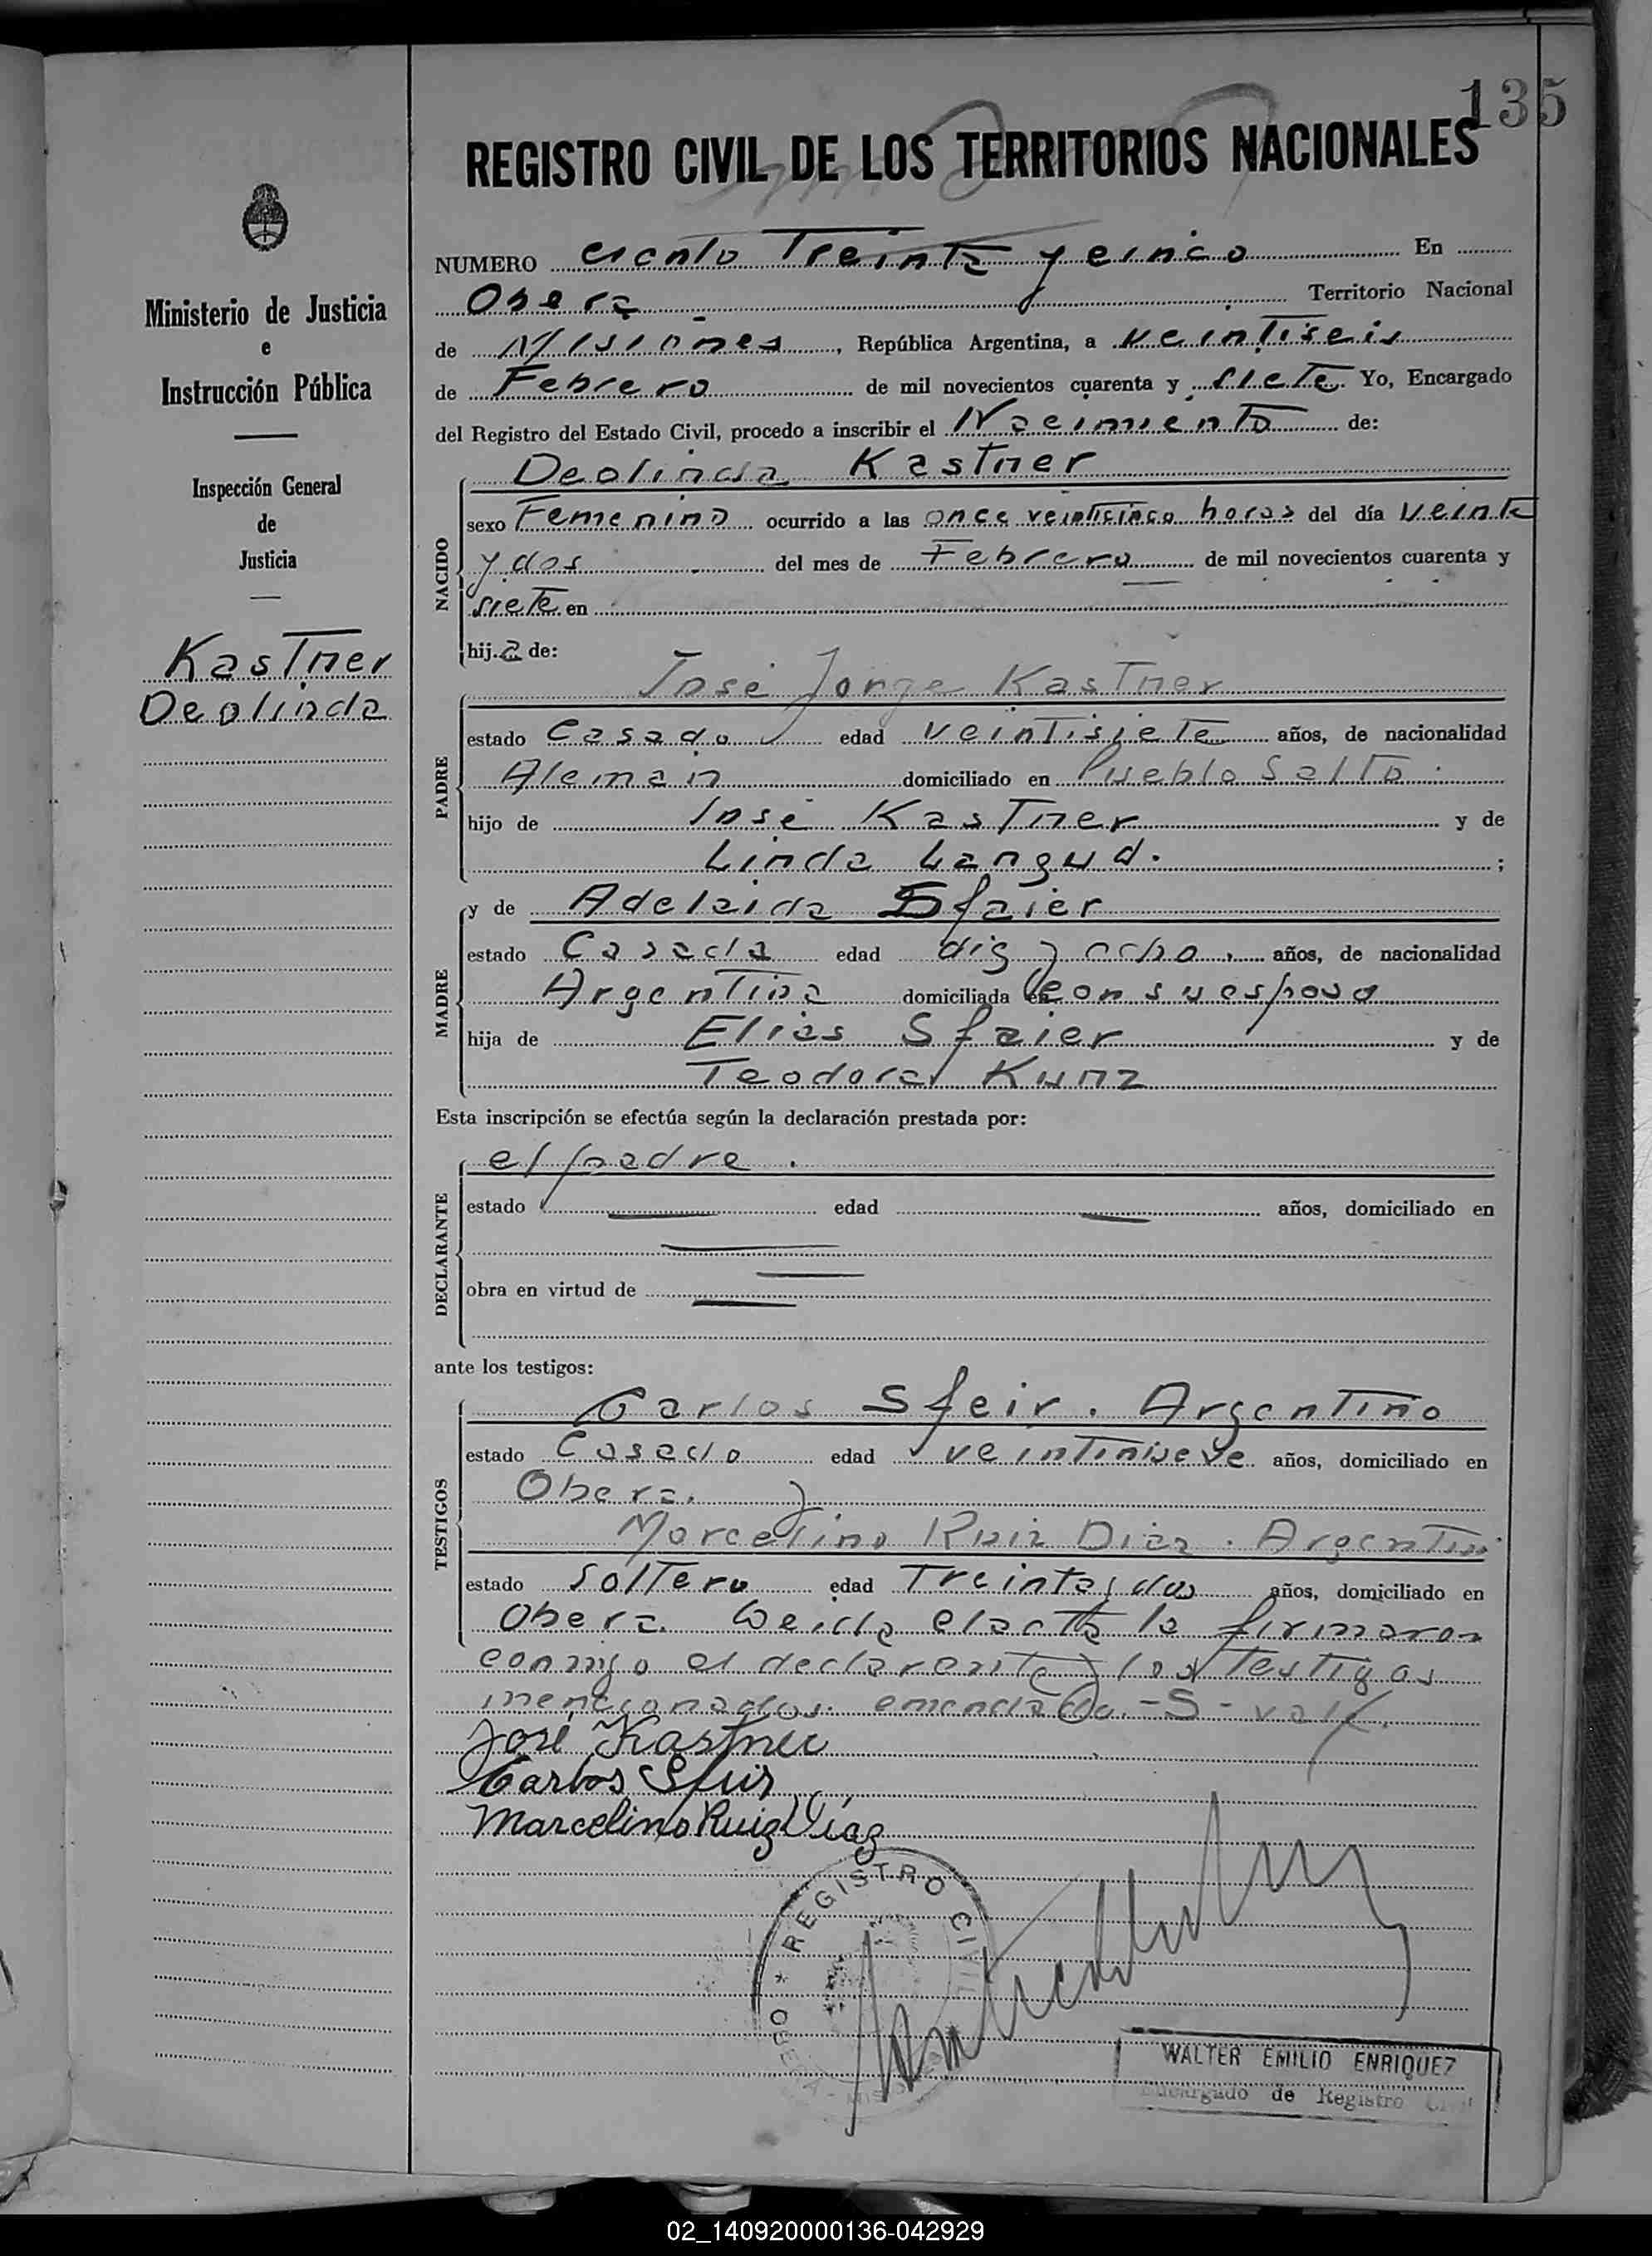 135
REGISTRO CIVIL DE LOS TERRITORIOS NACIONALES
Ministerio de Justicia
e
Instrucción Pública
Inspección General
de
Justicia
Kastner
Deolinda
NUMERO ciento Treinta y cinco En
Obera Territorio Nacional
de Misiones, República Argentina, a veintiseis
de Febrero de mil novecientos cuarenta y siete Yo, Encargado
del Registro del Estado Civil, procedo a inscribir el Nacimiento de:
NACIDO
Deolinda Kastner
sexo Femenino ocurrido a las once veinticinco horas del día veinte
y dos del mes de Febrero de mil novecientos cuarenta y
siete en
hija de:
PADRE
José Jorge Kastner
estado Casado edad veintisiete años, de nacionalidad
Aleman domiciliado en Pueblo Salto
hijo de José Kastner y de
Linda Langud. ;
MADRE
y de Adelaida Sfaier
estado Casada edad dis y ocho años, de nacionalidad
Argentina domiciliada en con su esposo
hija de Elias Sfaier y de
Teodora Kunz
Esta inscripción se efectúa según la declaración prestada por:
DECLARANTE
el padre.
estado edad años, domiciliado en
obra en virtud de
ante los testigos:
TESTIGOS
Carlos Sfeir. Argentino
estado Casado edad veintinueve años, domiciliado en
Obera. y
Marcelino Ruiz Diaz. Argentino
estado Soltero edad Treinta y dos años, domiciliado en
Obera. Leida el acta la firmaron
conmigo el declarante y los Testigos
mencionados. emendado.-S- vale.
José Kastner
Carlos Sfeir
Marcelino Ruiz Díaz
REGISTRO CIVIL
OBERA - MISIONES
WALTER EMILIO ENRIQUEZ
Encargado de Registro Civil
02_140920000136-042929